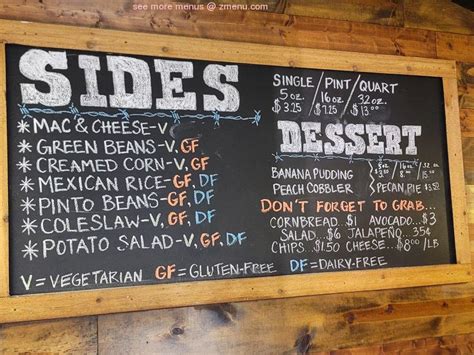 see more menus @ zmenu.com
SIDES
SINGLE / PINT / QUART
5 oz. 16 oz. 32 oz.
$3.25 $7.25 $13.00
* MAC & CHEESE-V
* GREEN BEANS-V, GF
* CREAMED CORN-V, GF
* MEXICAN RICE-GF, DF
* PINTO BEANS-GF, DF
* COLESLAW-V, GF, DF
* POTATO SALAD-V, GF, DF
V=VEGETARIAN GF=GLUTEN-FREE DF=DAIRY-FREE
DESSERT
BANANA PUDDING
8 oz 16 oz 32 oz
PEACH COBBLER
PECAN PIE
DON'T FORGET TO GRAB...
CORNBREAD...$1 AVOCADO...$3
SALAD...$6 JALAPEÑO...35¢
CHIPS...$1.50 CHEESE...$8.00/LB